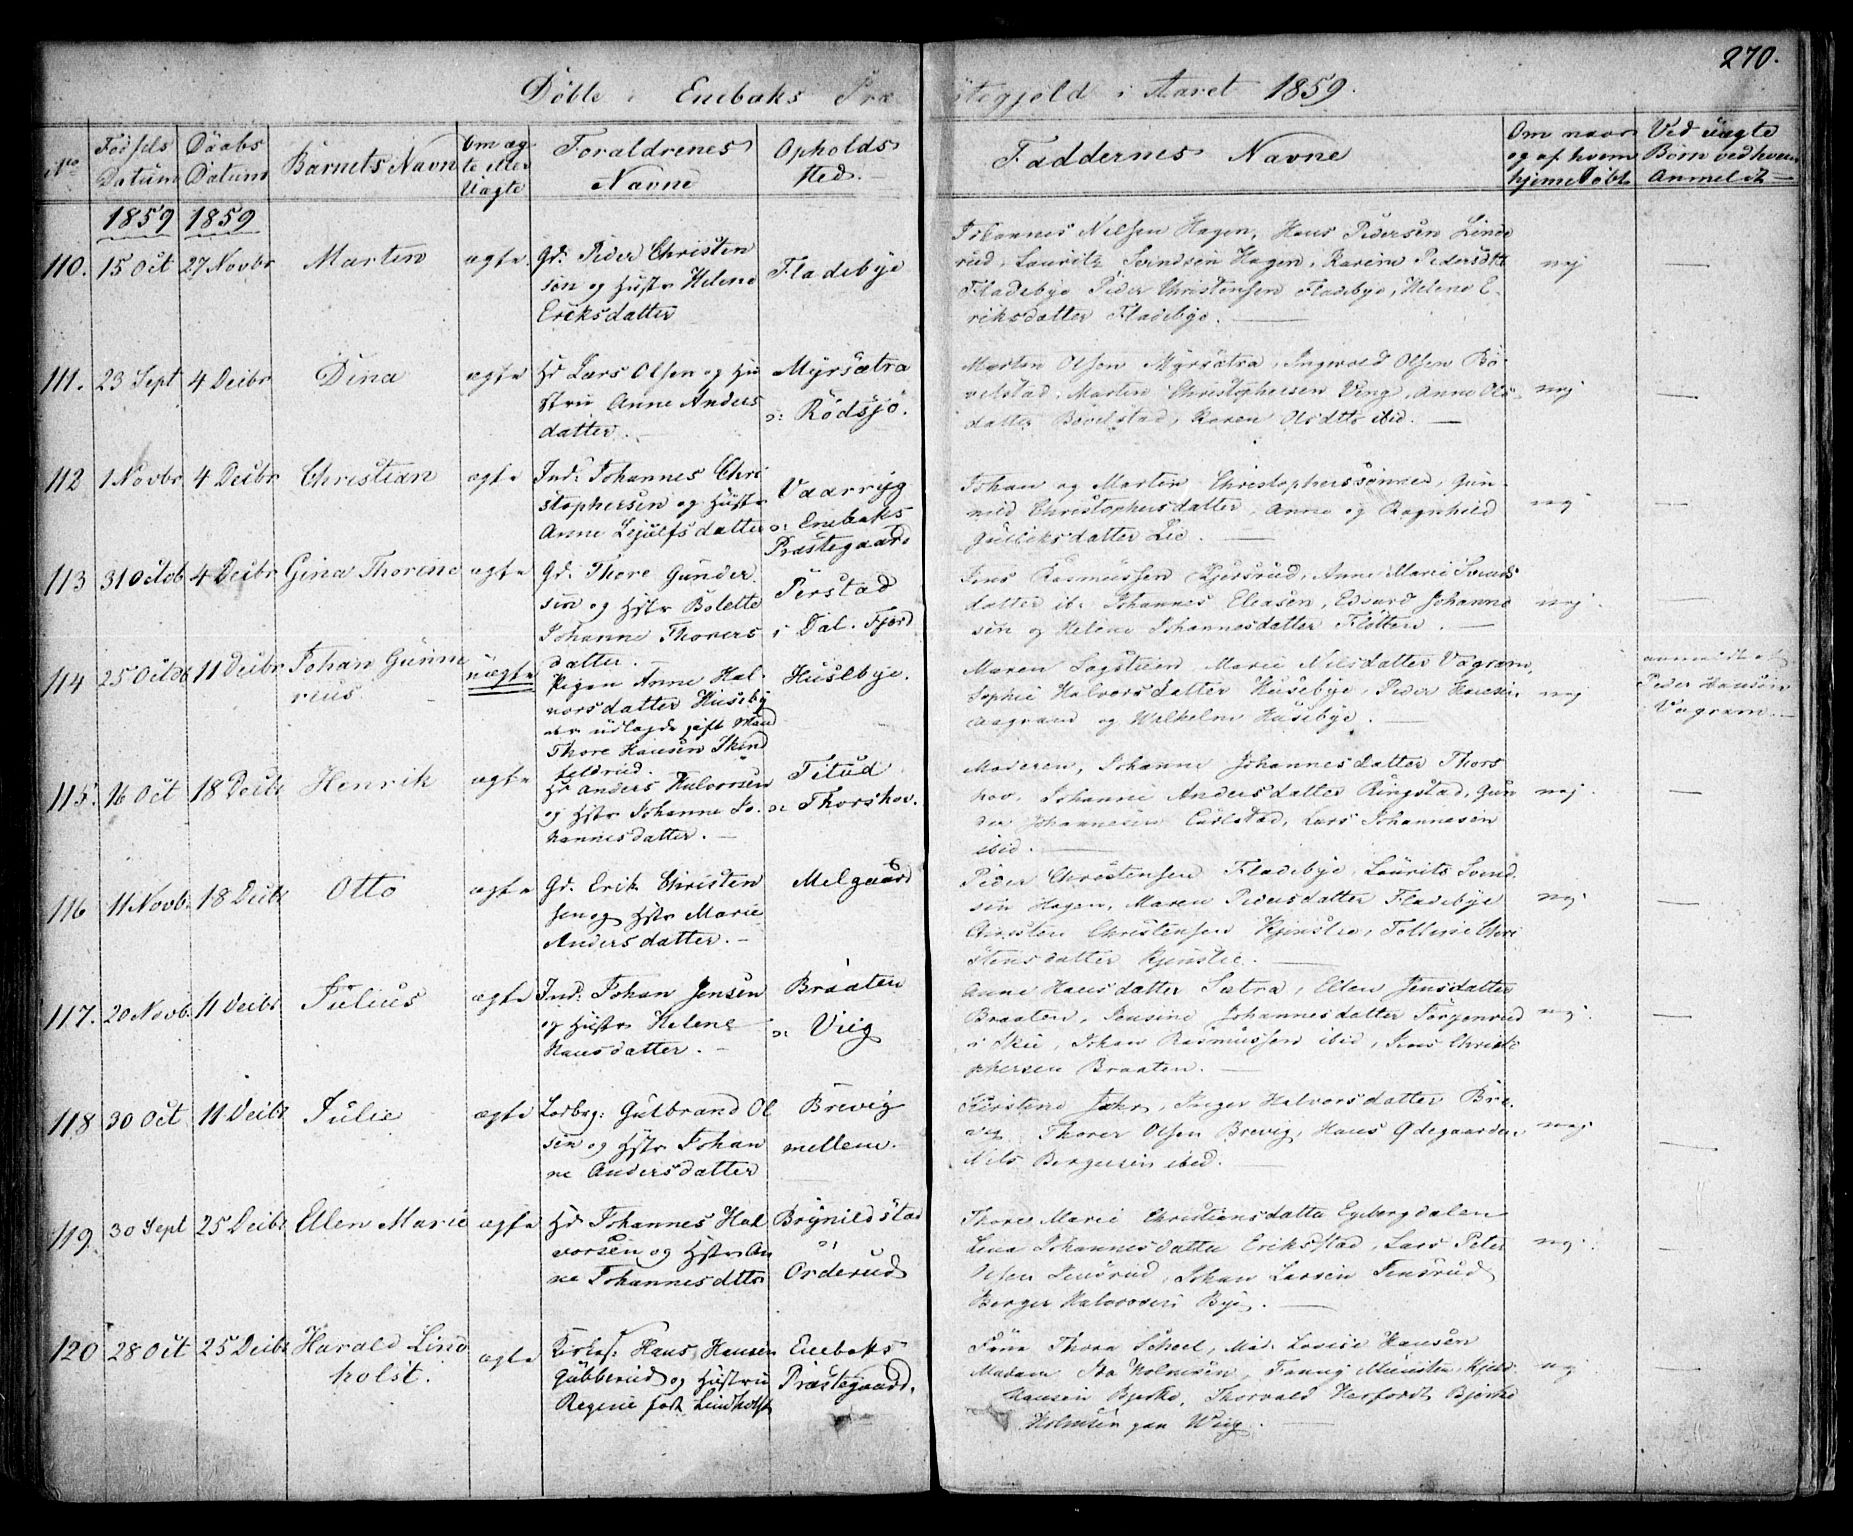 270.
Döbte i Enebaks Præstegjeld i Aaret 1859.
No
Födsels Datum
Daabs Datum
Barnets Navn
Om ægte eller Uægte
Forældrenes Navne
Opholds Sted.
Faddernes Navne
Om naar og af hvem hjemmedöbt
Ved uægte Börn ved hvem Anmeldt
1859 1859
110. 15 Oct 27 Novbr Marten ægte Gd: Peder Christen
sön og Hustr Helene
Eriksdatter
Fladebye
Johannes Nilsen Hagen, Hans Pedersen Linde
rud, Lauritz Svindsen Hagen, Karine Pedersdtt
Fladebye Peder Christensen Fladebye, Helene E-
riksdatter Fladebye.
nej —
111. 23 Sept 4 Decbr Dina ægte Hd Lars Olsen og Hu
stru Anne Anders
datter.
Myrsætra
o: Rödsjö.
Marten Olsen Myrsætra, Ingevald Olsen Bö
velstad, Marten Christophersen Ving, Anne Ols
datter Bövelstad, Karen Olsdttr ibid.
nej —
112 1 Novbr 4 Decbr Christian ægte Ind: Johannes Chri
stophersen og Hustr
Anne Lejulfsdatter
Vaarryg
o: Enebaks
Præstegaard
Johan og Marten Christopherssönner, Gun
nild Christophersdatter, Anne og Ragnhild
Gulliksdatter Lie.
nej —
113 31 Octob 4 Decbr Gina Thorine ægte Gd: Thore Gunder
sen og Hstr Bolette
Johanne Thorers
datter.
Perstad
i Dal. Fjerd
Jens Rasmussen Kjersrud, Anne Marie Svends
datter ib: Johannes Eleasen, Edvard Johanne
sen og Helene Johannesdatter Flötten.
nej —
114 25 Octob 11 Decbr Johan Gunne
rius.
uægte Pigen Anne Hal-
vorsdatter Huseby
udlagde gift Mand
Thore Hansen Skind
feldrud.
Huslbye.
Maren Sogstien Marie Nilsdatter Vagram,
Sophie Halvorsdatter Husebye, Peder Hansen
Vagram og Wilhelm Husebye.
nej anmeldt af
Peder Hansen
Vagram.
115. 16 Oct 18 Decbr Henrik ægte Hr Anders Halvorsen
og Hstr Johanne Jo-
hannesdatter.
Titud
o: Thorshov.
Moderen, Johanne Johannesdatter Thors
hov, Johanne Andersdatter Ringstad, Gun
der Johannesen Carlstad, Lars Johannesen
ibid.
nej. —
116 11 Novb. 18 Decbr Otto ægte Gd. Erik Christen
sen og Hstr Marie
Andersdatter.
Melgaard
Peder Christensen Fladebye, Laurits Svend
sen Hagen, Maren Pedersdatter Fladebye
Christen Christensen Kjinslie, Chri
stensdatter Kjinslie.
nej. —
117. 20 Novb. 11 Decbr Julius ægte Ind: Johan Jensen
og Hustr Helene
Hansdatter.
Braaten
o: Viig
Anne Hansdatter Sætra, Ellen Jensdatter
Braaten, Jensine Johannesdatter Torgenrud
i Skie, Johan Rasmussen ibid, Jens Christo
phersen Braaten.
nej. —
118 30 Oct 11 Decbr Julie ægte Lodbeg: Gulbrand Ol
sen og Hstr Johan
ne Andersdatter
Brevig
mellem.
Kirstine Jahr, Inger Halvorsdatter Bre-
vig Thorer Olsen Brevig, Hans Ödegaarden,
Nils Bergersen ibid.
nej —
119. 30 Sept 25 Decbr Ellen Marie ægte Hd Johannes Hal
vorsen og Hstr An
ne Johannesdttr
Brynildstad
o:
Orderud
Thore Marie Christiansdatter Egebergdalen
Lina Johannesdatter Eriksstad, Lars Peter
Olsen Jensrud, Johan Larsen Jensrud
Berger Halvorsen Bye.
nej. —
120 28 Oct 25 Decbr Harald Lind
holst.
ægte Hans Hansen
Gubberud og Hustru
Regine födt Lindholst
Enebaks
Præstegaard.
Thora Scheel, Mad. Lovise Hansen
Madam Holmsen, Fanny Münster,
Hansen Bjerke, Thorvald Herfordt Bjerke
Holmsen paa Wiig.
nej —